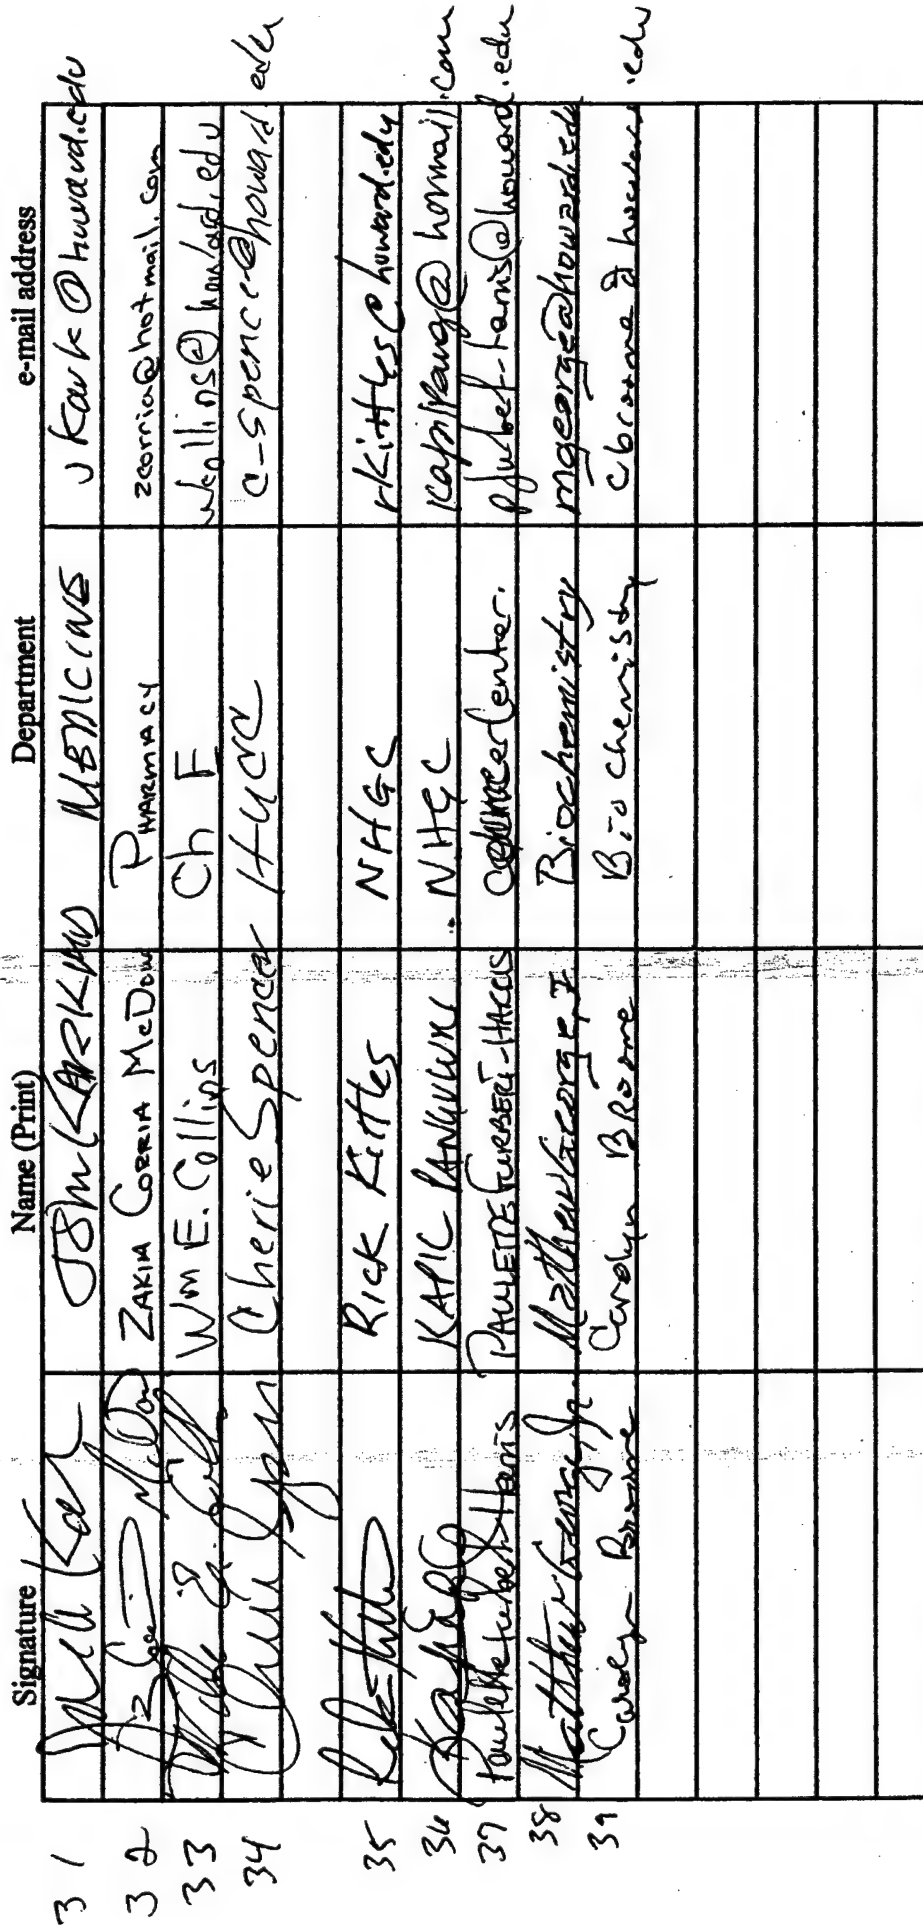 Signature Name (Print) Department e-mail address
31 John Kark MEDICINE jkark@howard.edu
32 ZAKIA CORRIA McDow PHARMACY zcorria@hotmail.com
33 Wm E. Collins Ch E wkollins@howard.edu
34 Cherie Spencer HUCC c-spence@howard edu
35 Rick Kittles NHGC rkittles@howard.edu
36 NHGC .com
37 Paulette Furbert-Harris PAULETTE FURBERT-HARRIS Cancer Center. pfurbert-harris@howard.edu
38 Matthew George Jr. Matthew George, Jr Biochemistry mgeorge@howard.edu
39 Carolyn Broome Carolyn BRoome Bio chemistry cbroome@howard.edu